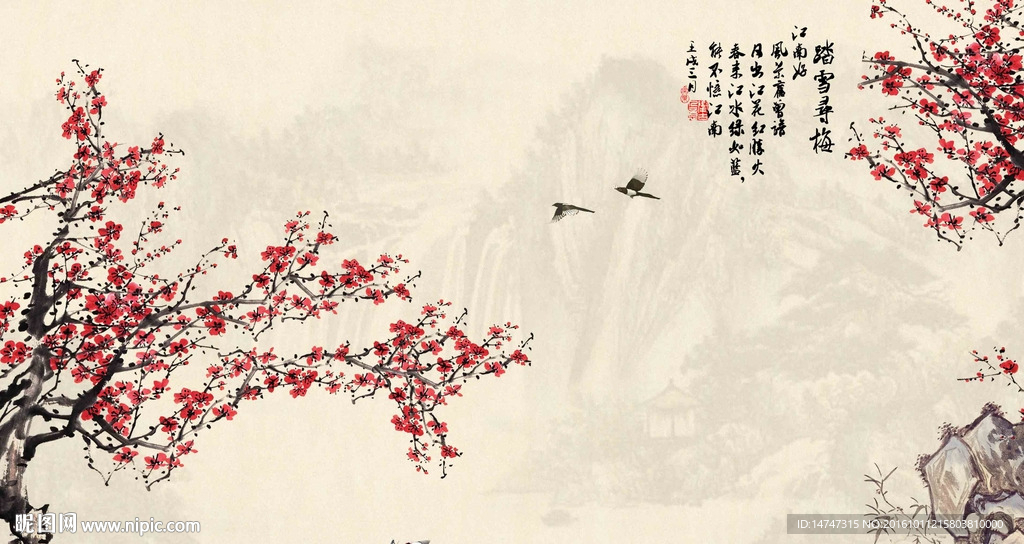 踏雪尋梅
江南好
風景舊曾諳
日出江花紅勝火
春来江水綠如藍，
能不憶江南
壬戌三月
昵图网 www.nipic.com
ID:14747315 NO:20161011215803810000